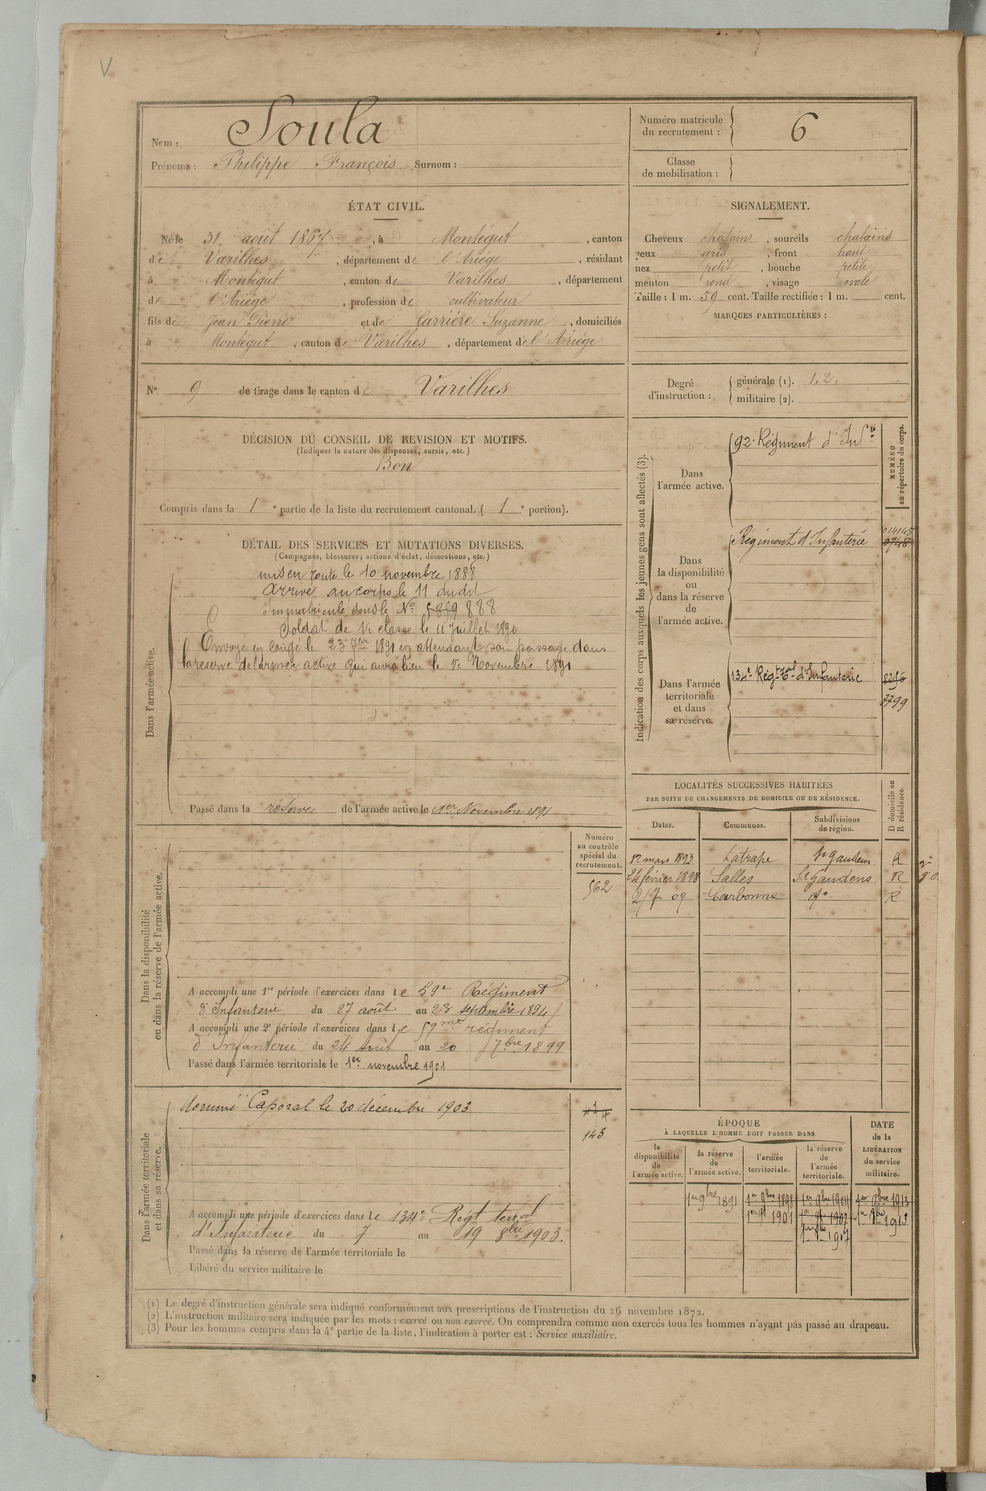 V
Nom : Soula
Prénoms : Philippe François Surnom :
Numéro matricule du recrutement : 6
Classe de mobilisation :
ÉTAT CIVIL.
Né le 31 août 1867, à Montégut, canton
de Varilhes, département de l'Ariège, résidant
à Montégut, canton de Varilhes, département
de l'Ariège, profession de cultivateur
fils de Jean Pierre et de Carrière Suzanne, domiciliés
à Montégut, canton de Varilhes, département de l'Ariège
SIGNALEMENT.
Cheveux chatains, sourcils chatains
yeux gris, front haut
nez petit, bouche petite
menton rond, visage ovale
Taille : 1 m. 59 cent. Taille rectifiée : 1 m. cent.
MARQUES PARTICULIÈRES :
N° 9 de tirage dans le canton de Varilhes
Degré d'instruction :
générale (1). 1,2,
militaire (2).
DÉCISION DU CONSEIL DE REVISION ET MOTIFS.
(Indiquer la nature des dispenses, sursis, etc.)
Bon
Compris dans la 1e partie de la liste du recrutement cantonal. ( 1e portion).
DÉTAIL DES SERVICES ET MUTATIONS DIVERSES.
(Campagnes, blessures, actions d'éclat, décorations, etc.)
Dans l'armée active.
mis en route le 10 novembre 1888
arrivé au corps le 11 du dit
Immatriculé sous le N° 5869 888
Soldat de 1e classe le 11 Juillet 1890
Envoyé en congé le 23 7bre 1891 en attendant son passage dans
la reserve de l'armée active qui aura lieu le 1e Novembre 1891
Passé dans la réserve de l'armée active le 1er Novembre 1891
Indication des corps auxquels les jeunes gens sont affectés (3).
NUMÉRO au répertoire du corps.
Dans l'armée active.
92e Régiment d'Infie
Dans la disponibilité ou dans la réserve de l'armée active.
Régiment d'Infanterie
Dans l'armée territoriale et dans sa réserve.
134e Régt tal d'Infanterie
LOCALITÉS SUCCESSIVES HABITÉES
PAR SUITE DE CHANGEMENTS DE DOMICILE OU DE RÉSIDENCE.
Dates. Communes. Subdivisions de région. D domicile ou R résidence.
12 mars 1893 Latrape St Gaudens R
24 février 1898 Salles St Gaudens R
2/7 09 Carbonne do R
Dans la disponibilité ou dans la réserve de l'armée active.
Numéro au contrôle spécial du recrutement.
562
A accompli une 1re période d'exercices dans le 59e Régiment
d'Infanterie du 27 août au 23 septembre 1894
A accompli une 2e période d'exercices dans le 59me régiment
d'Infanterie du 24 août au 20 7bre 1899
Passé dans l'armée territoriale le 1er novembre 1901
Dans l'armée territoriale et dans sa réserve.
Nommé Caporal le 20 décembre 1903
143
A accompli une période d'exercices dans le 134e Regt terral
d'Infanterie du 7 au 19 8bre 1903.
Passé dans la réserve de l'armée territoriale le
Libéré du service militaire le
ÉPOQUE
À LAQUELLE L'HOMME DOIT PASSER DANS
la disponibilité de l'armée active. la réserve de l'armée active. l'armée territoriale. la réserve de l'armée territoriale.
DATE de la LIBÉRATION du service militaire.
1er 9bre 1891 1er 9bre 1898 1er 9bre 1904 1er 9bre 1913
(1) Le degré d'instruction générale sera indiqué conformément aux prescriptions de l'instruction du 26 novembre 1872.
(2) L'instruction militaire sera indiquée par les mots : exercé ou non exercé. On comprendra comme non exercés tous les hommes n'ayant pas passé au drapeau.
(3) Pour les hommes compris dans la 4e partie de la liste, l'indication à porter est : Service auxiliaire.